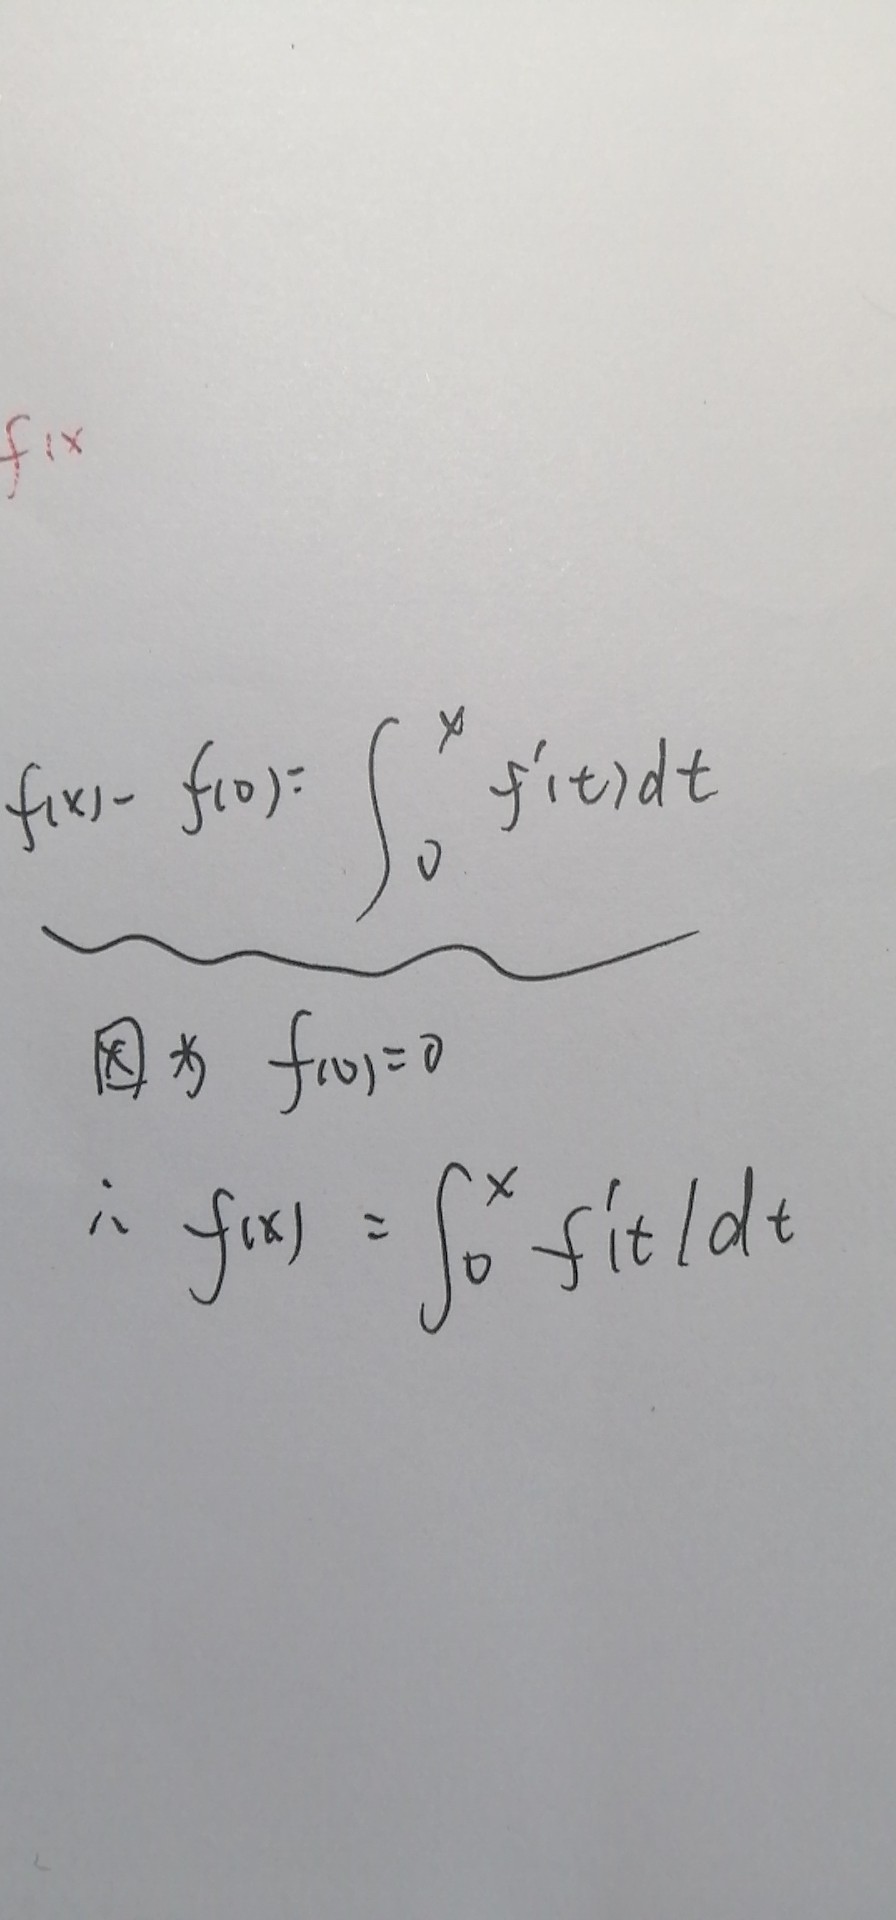 f(x
f(x)- f(0)= ∫₀ˣ f'(t)dt
因为 f(0)=0
∴ f(x) = ∫₀ˣ f'(t)dt